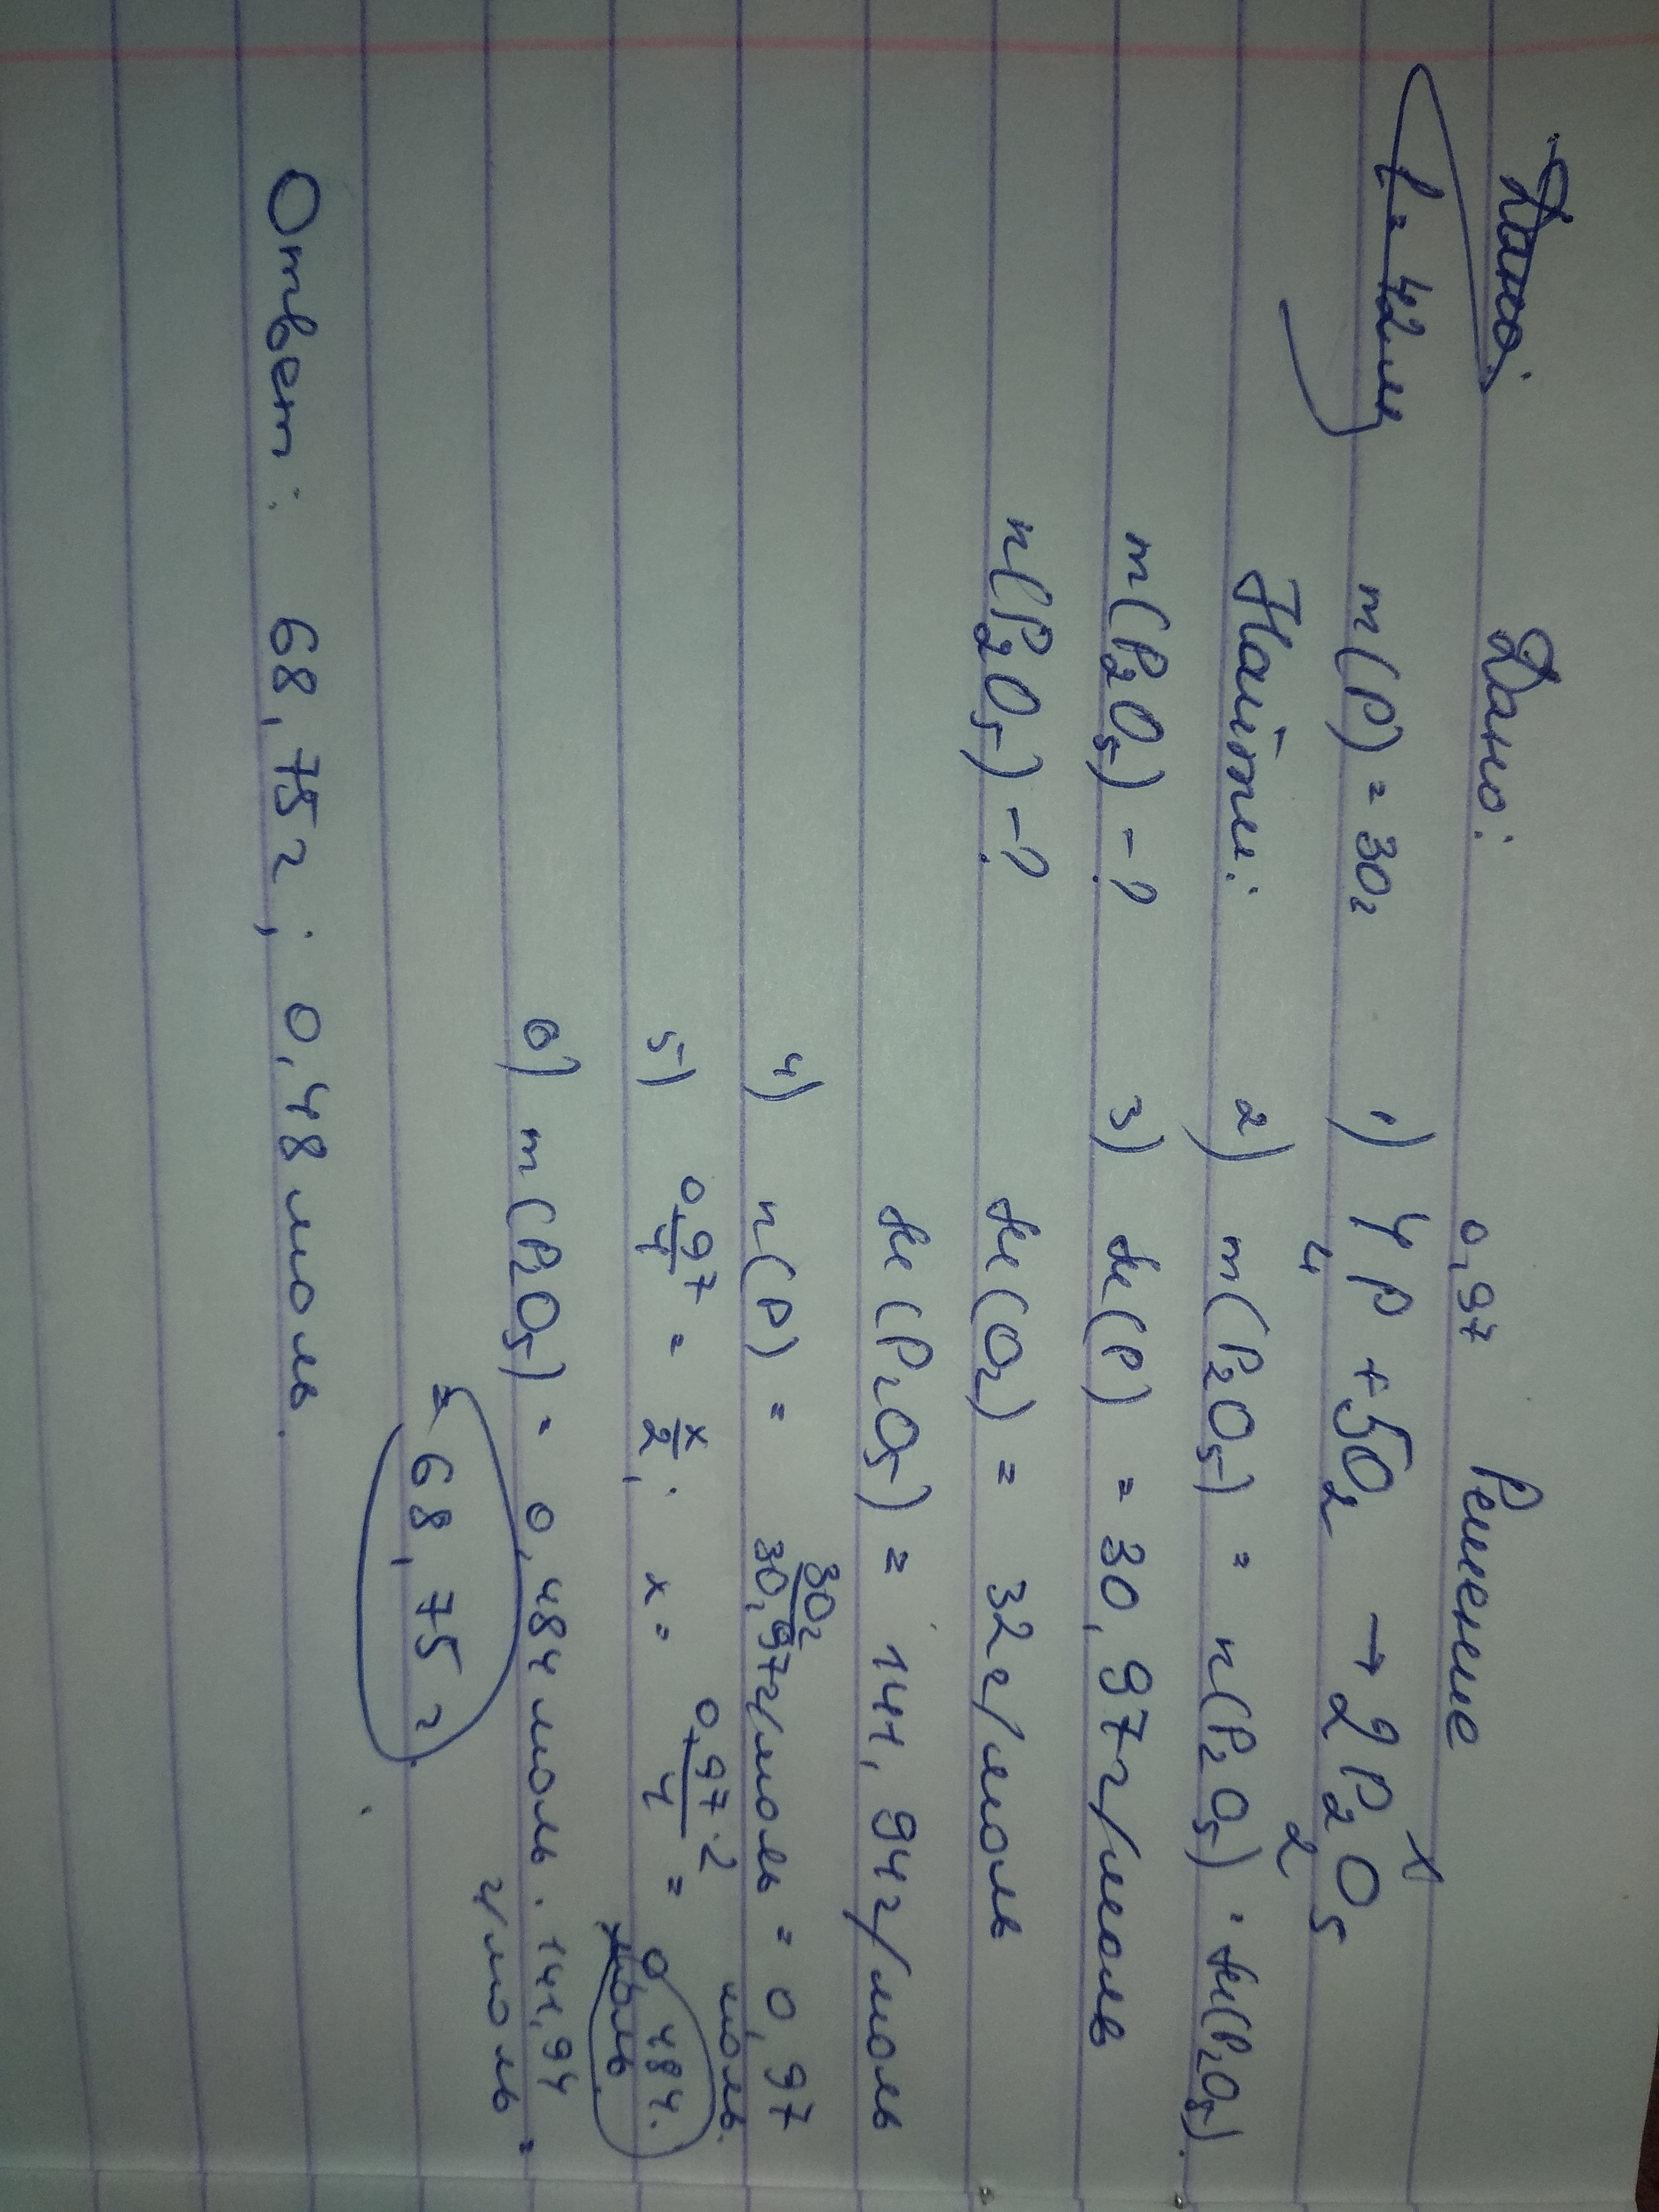 Дано: Решение
m(P) = 30г
Найти:
m(P₂O₅) - ?
n(P₂O₅) - ?
0,97 x
1) 4P + 5O₂ → 2P₂O₅
4 2
2) m(P₂O₅) = n(P₂O₅) · M(P₂O₅).
3) M(P) = 30,97г/моль
M(O₂) = 32г/моль
M(P₂O₅) = 141,94г/моль
4) n(P) = 30г/30,97г/моль = 0,97 моль.
5) 0,97/4 = x/2; x = 0,97·2/4 = 0,484. моль
6) m(P₂O₅) = 0,484моль · 141,94 г/моль =
= 68,75 г.
Ответ: 68,75г; 0,48моль.